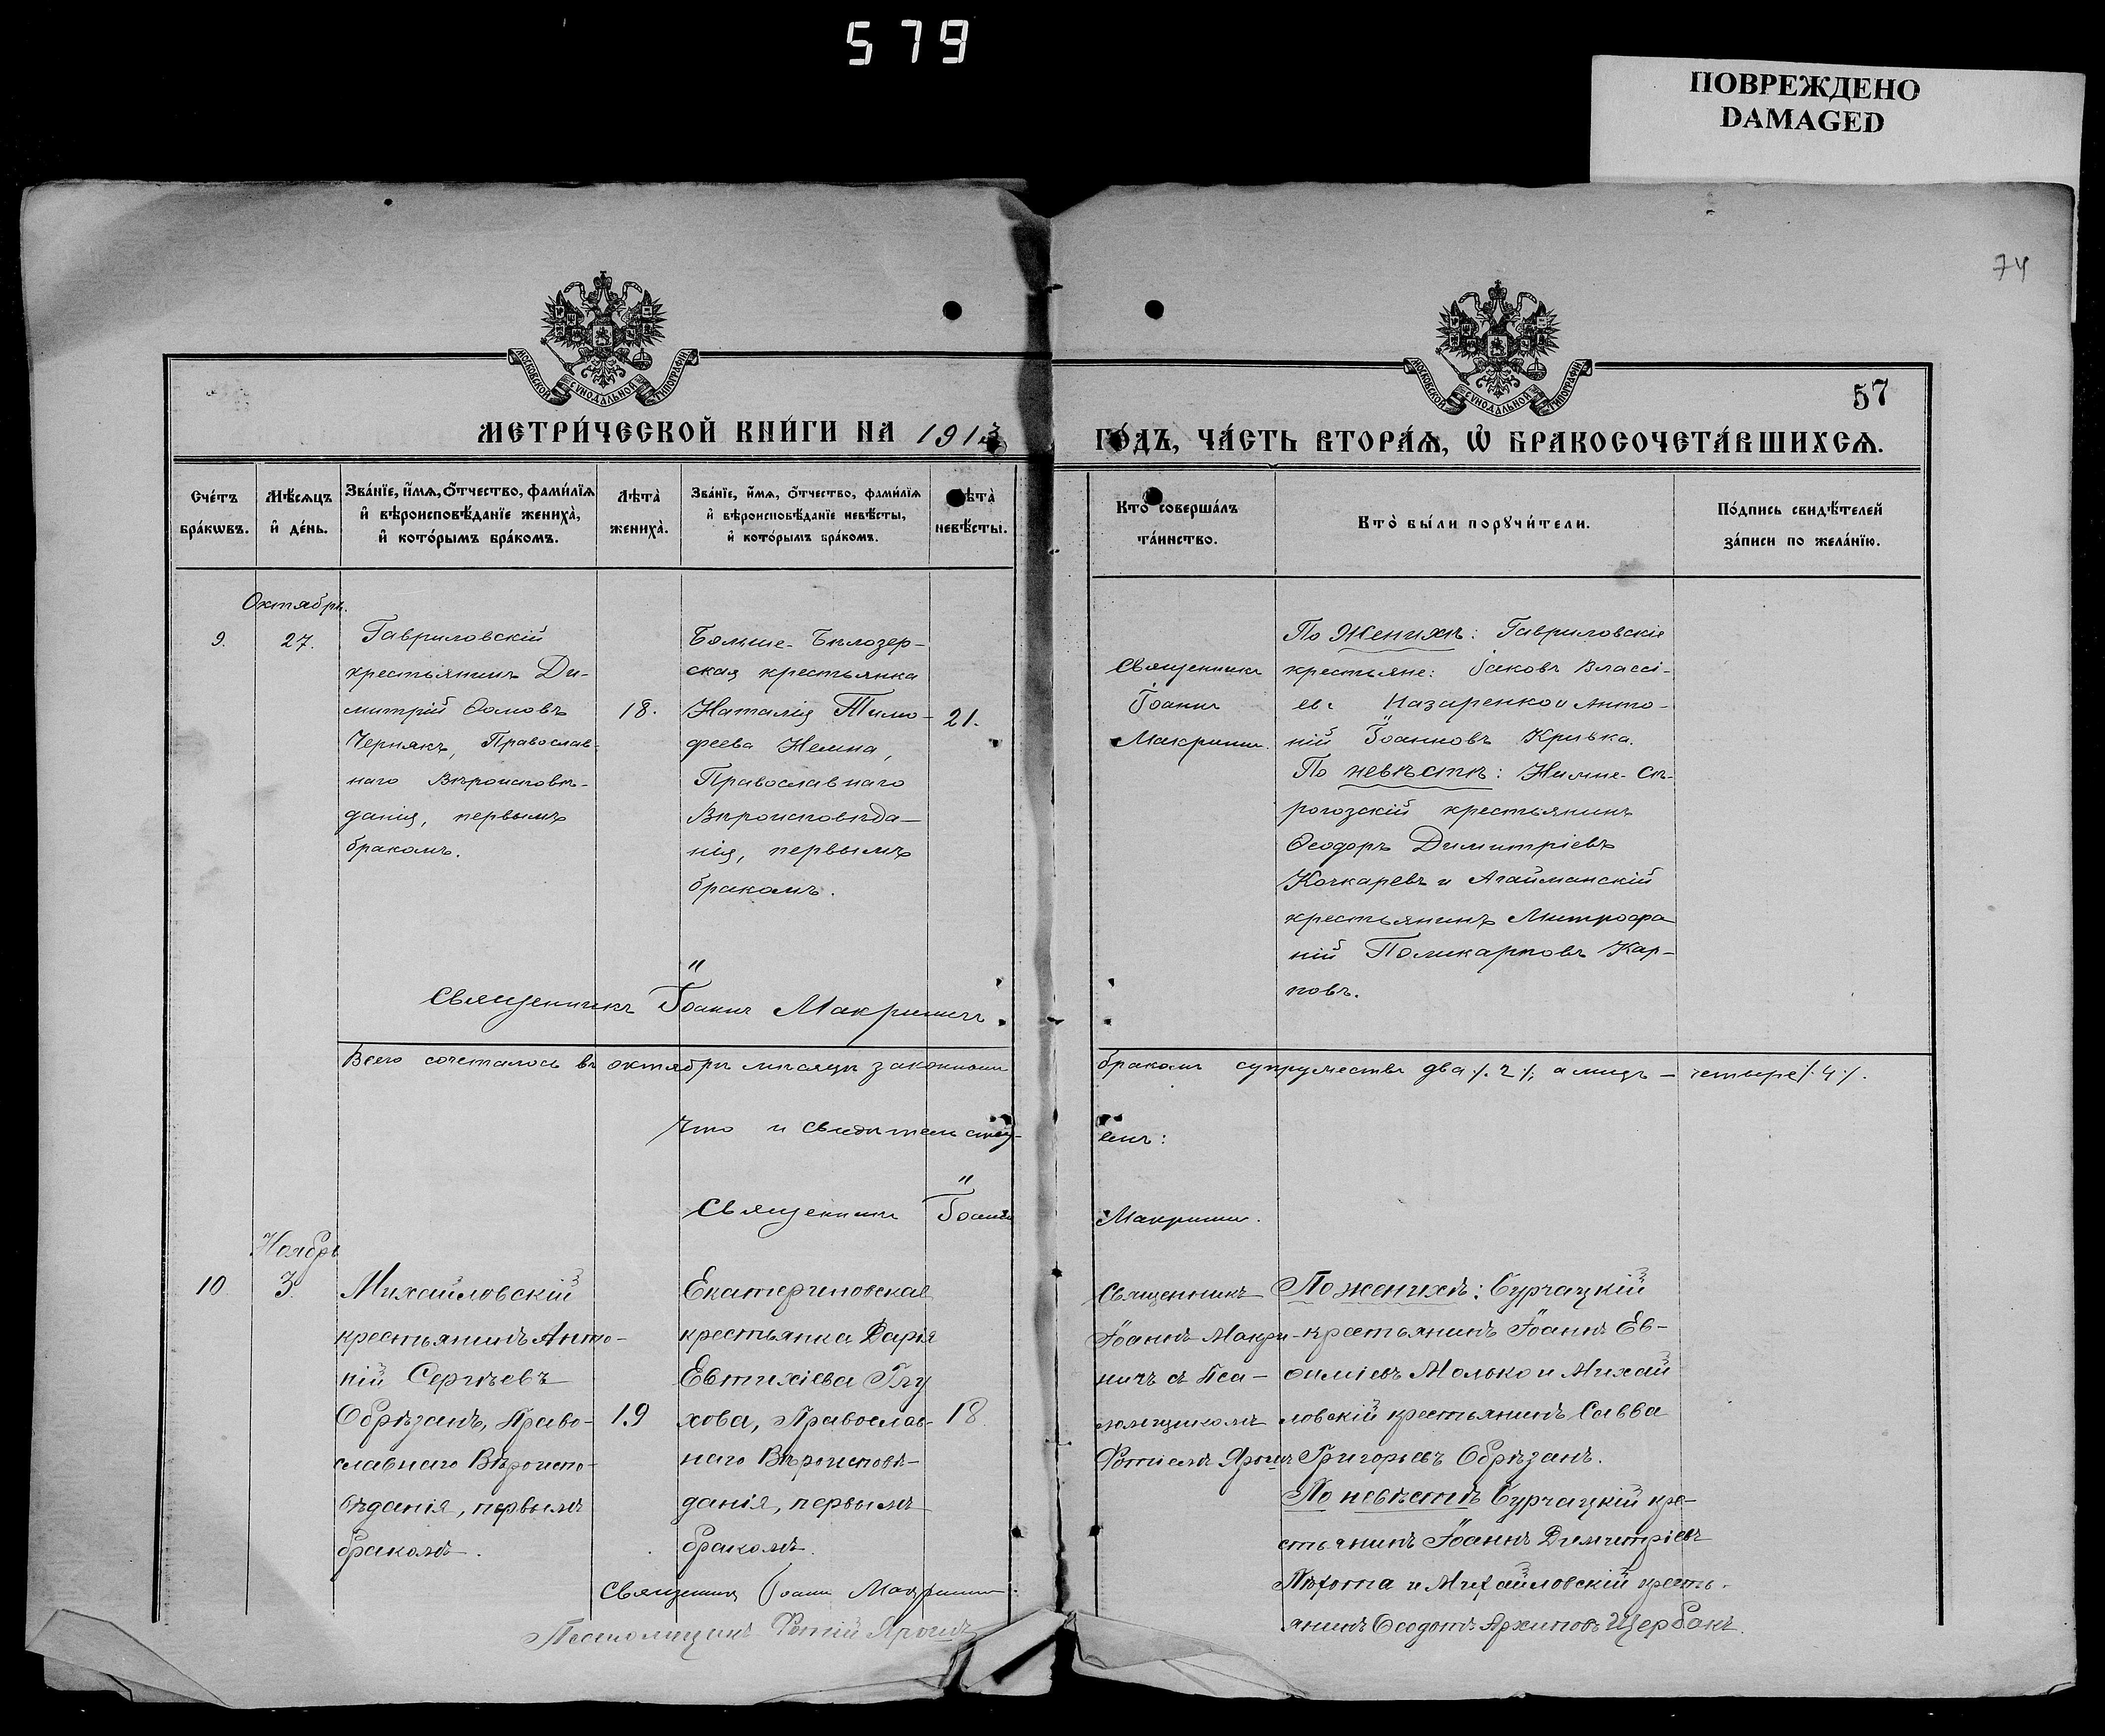 579
ПОВРЕЖДЕНО
DAMAGED
74
МОСКОВСКОЙ СѴНОДАЛЬНОЙ ТИПОГРАФІИ
МОСКОВСКОЙ СѴНОДАЛЬНОЙ ТИПОГРАФІИ
57
МЕТРИ́ЧЕСКОЙ КНИ́ГИ НА 1913
ГО́ДЪ, ЧА́СТЬ ВТОРА́Ѧ, Ѡ҆ БРАКОСОЧЕТА́ВШИХСѦ.
Сче́тъ
бра́кѡвъ.
Мѣ́сѧцъ
и҆ де́нь.
Зва́нїе, и҆́мѧ, ѻ҆́тчество, фами́лїѧ
и҆ вѣроисповѣ́данїе жениха̀,
и҆ кото́рымъ бра́комъ.
Лѣта̀
жениха̀.
Зва́нїе, и҆́мѧ, ѻ҆́тчество, фами́лїѧ
и҆ вѣроисповѣ́данїе невѣ́сты,
и҆ кото́рымъ бра́комъ.
Лѣта̀
невѣ́сты.
Кто̀ соверша́лъ
та́инство.
Кто̀ бы́ли порꙋчи́тели.
По́дпись свидѣ́телей
за́писи по жела́нїю.
Октябрь.
9.
27.
Гавриловскій
крестьянинъ Ди-
митрій Ѳомовъ
Чернякъ, Православ-
наго Вѣроисповѣ-
данія, первымъ
бракомъ.
18.
Больше-Бѣлозер-
ская крестьянка
Наталія Тимо-
феева Немна,
Православнаго
Вѣроисповѣда-
нія, первымъ
бракомъ.
21.
Священникъ
Іоаннъ
Макринъ.
По Женихѣ: Гавриловскіе
крестьяне: Іаковъ Власі-
евъ Назаренко и Анто-
ній Іоанновъ Кривка.
По невѣстѣ: Нижне-Сѣ-
рогозскій крестьянинъ
Ѳеодоръ Димитріевъ
Кочкаревъ и Агайманскій
крестьянинъ Митрофа
ній Поликарповъ Кар-
повъ.
Священникъ Іоаннъ Макринич
Всего сочеталось въ октябрѣ мѣсяцѣ законнымъ
бракомъ супружествъ два ./. 2 ./., а лицъ — четыре /. 4 ./.
Что и свидѣтельству-
емъ:
Священникъ Іоаннъ
Макринъ.
Ноябрь
10
3.
Михайловскій
крестьянинъ Анто-
ній Сергѣевъ
Обрѣзанъ, Право-
славнаго Вѣроиспо-
вѣданія, первымъ
бракомъ.
19
Екатериновская
крестьянка Дарія
Евтихіева Глу
хова, Православ-
наго Вѣроисповѣ-
данія, первымъ
бракомъ.
18.
Священникъ
Іоаннъ Макри-
ничъ съ Пса-
ломщикомъ
Фотіемъ Ярошъ
По женихѣ: Бурчацкій
крестьянинъ Іоаннъ Ев-
ѳиміевъ Молько и Михай
ловскій крестьянинъ Савва
Григорьевъ Обрѣзанъ.
По невѣстѣ Бурчацкій кре-
стьянинъ Іоаннъ Димитріевъ
Пѣхота и Михайловскій кресть-
янинъ Ѳеодотъ Архиповъ Щербакъ.
Священникъ Іоаннъ Макринъ.
Псаломщикъ Фотій Ярошъ